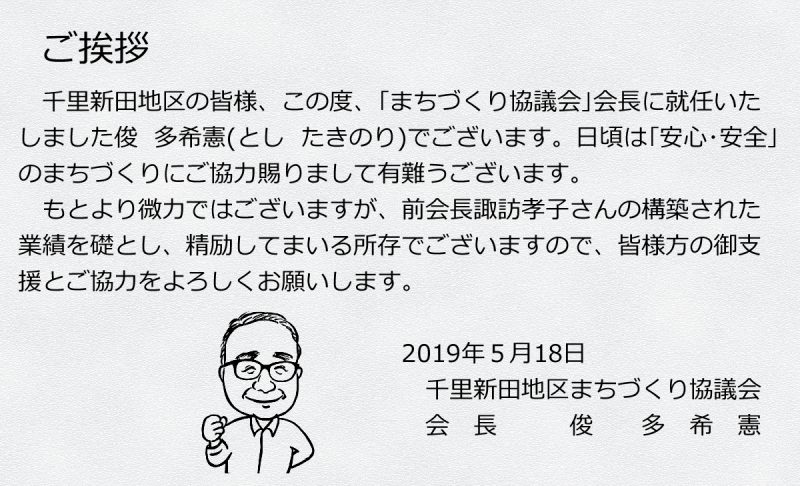 ご挨拶
千里新田地区の皆様、この度、｢まちづくり協議会｣会長に就任いた
しました俊 多希憲(とし たきのり)でございます。日頃は｢安心･安全｣
のまちづくりにご協力賜りまして有難うございます。
もとより微力ではございますが、前会長諏訪孝子さんの構築された
業績を礎とし、精励してまいる所存でございますので、皆様方の御支
援とご協力をよろしくお願いします。
2019年５月18日
千里新田地区まちづくり協議会
会　長　　　俊　　多　希　憲